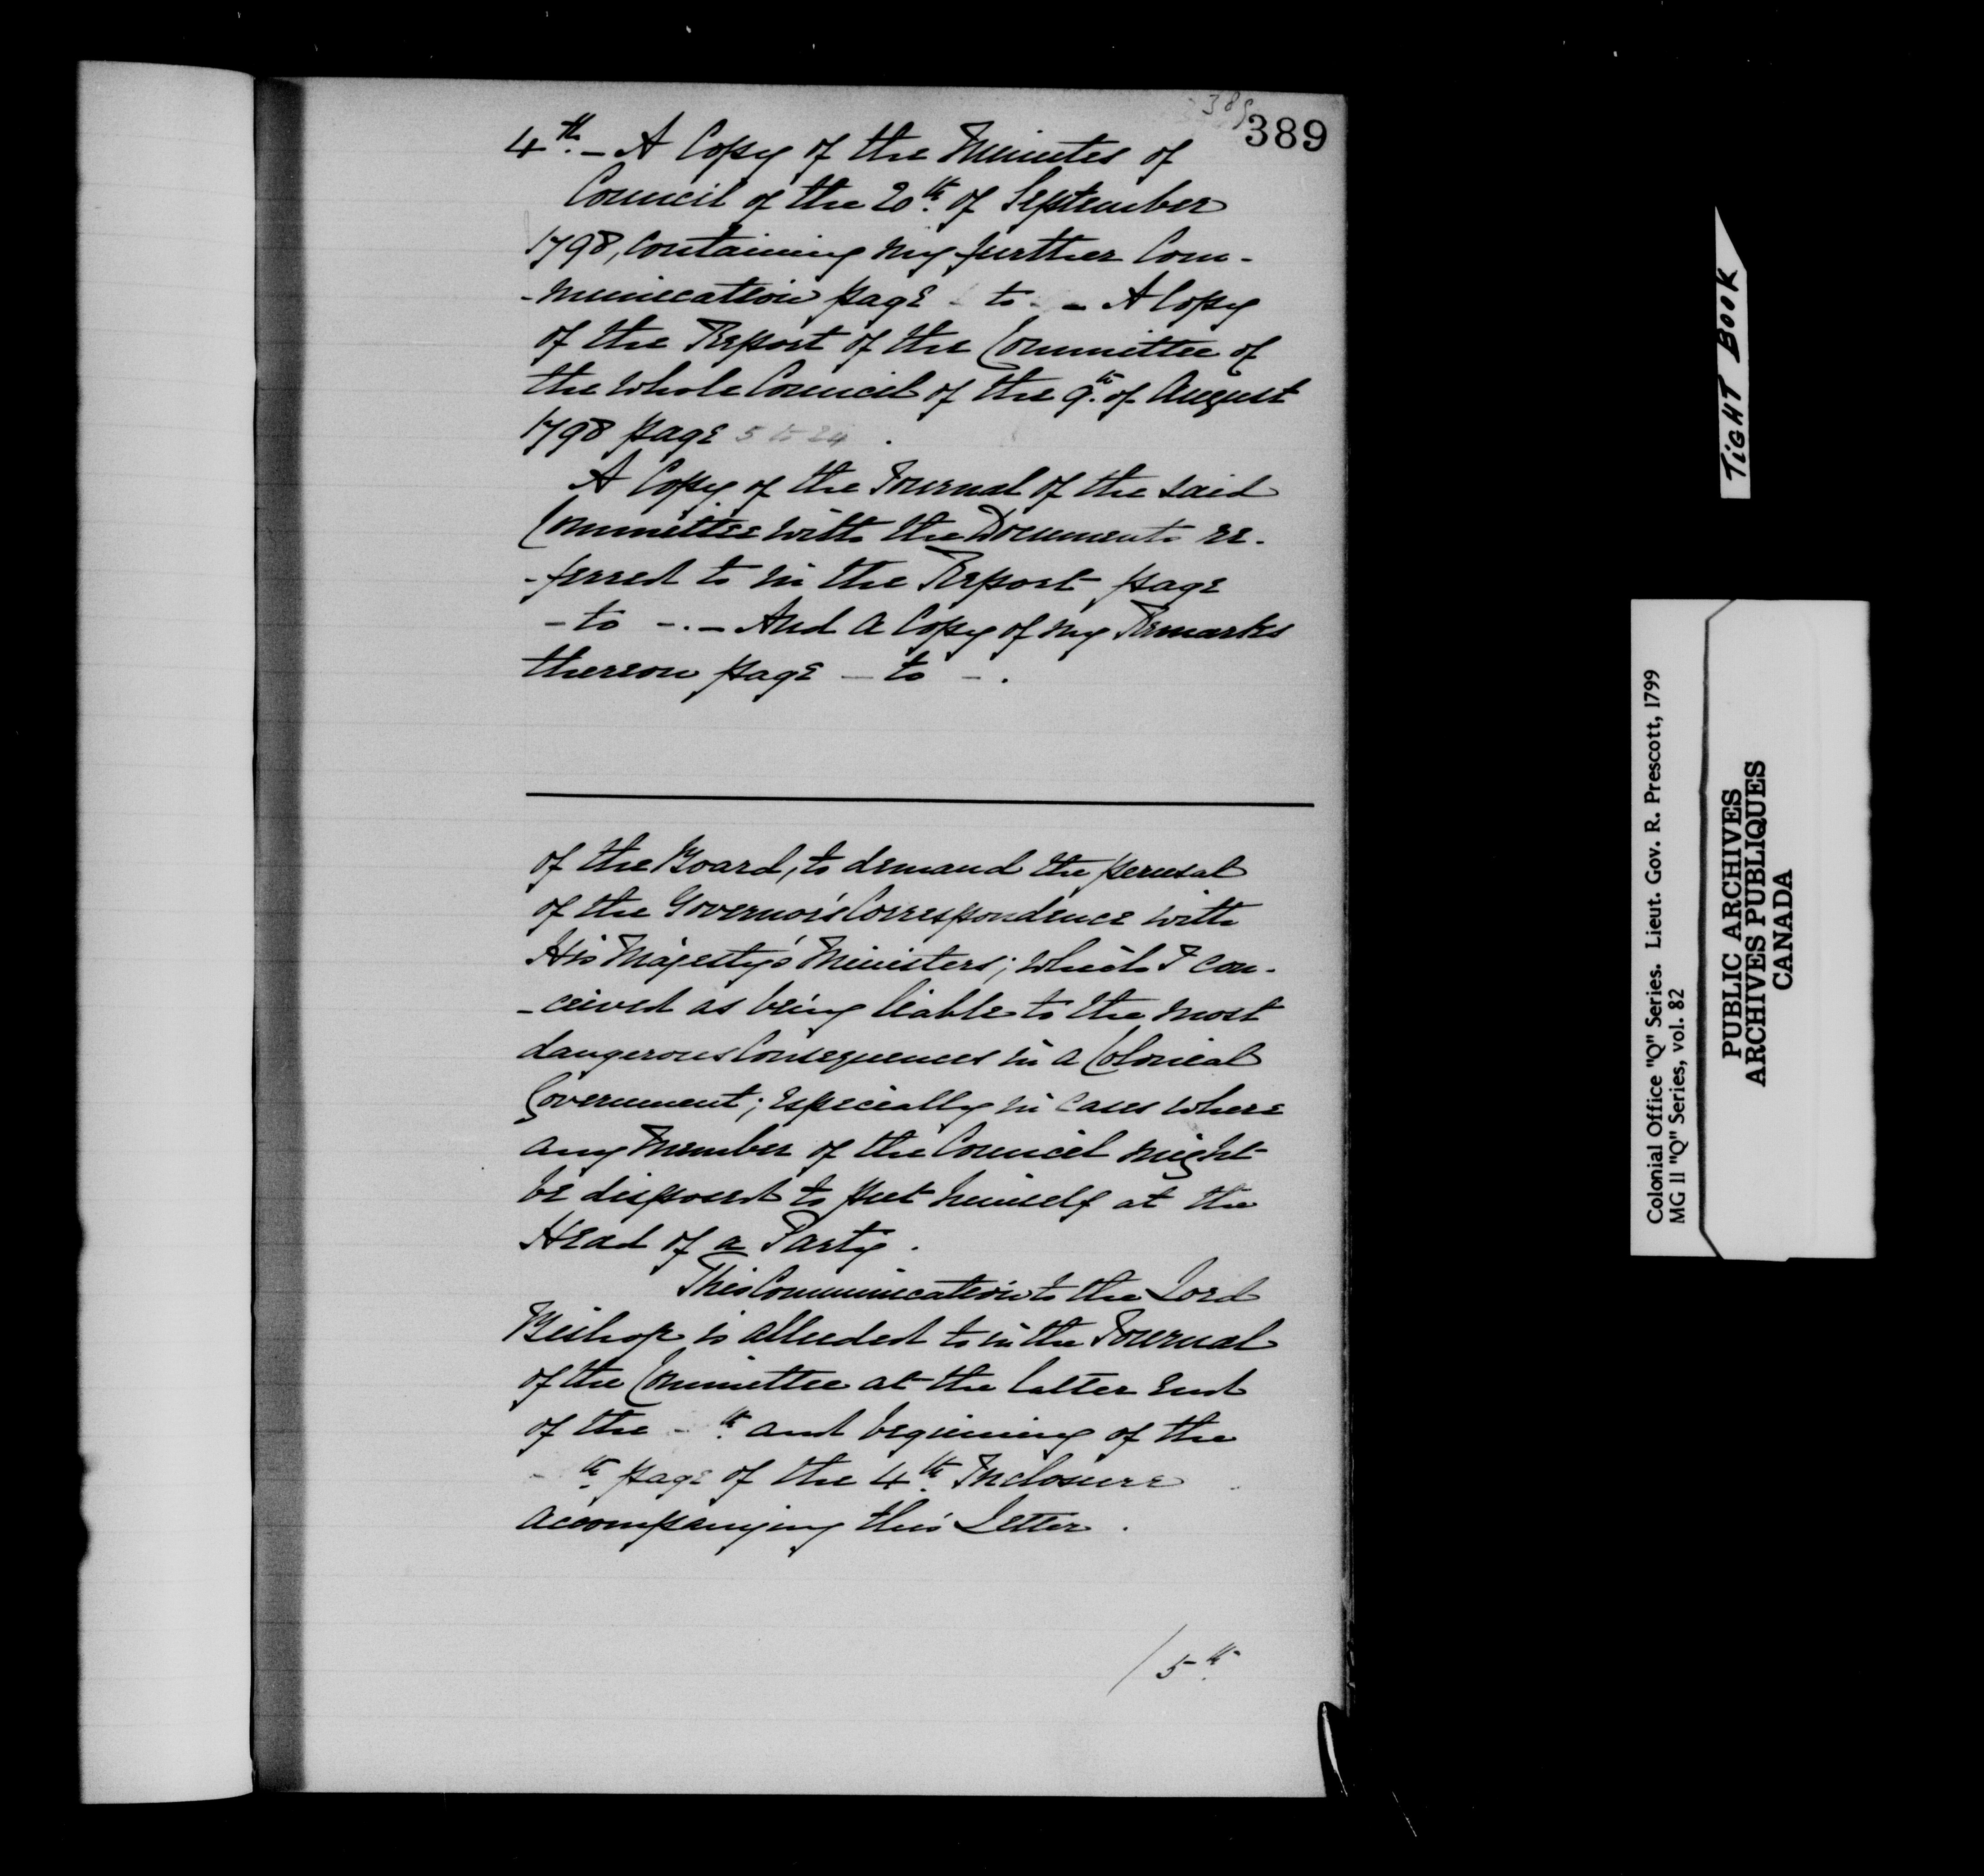 389
389
4th. - A Copy of the Minutes of
Council of the 20th. of September
1798, containing my further Com-
-munication page to - A Copy
of the Report of the Committee of
the Whole Council of the 9th. of August
1798 page 5 to 24 .
A Copy of the Journal of the said
Committee with the Documents re-
-ferred to in the Report page
- to -. - And a Copy of my Remarks
thereon page - to - .
of the Board, to demand the perusal
of the Governor's Correspondence with
His Majesty's Ministers; which I con-
-ceived as being liable to the most
dangerous Consequences in a Colonial
Government; especially in cases where
any Member of the Council might
be disposed to put himself at the
Head of a Party .
This Communication to the Lord
Bishop is alluded to in the Journal
of the Committee at the latter end
of the - th. and beginning of the
- th. page of the 4th. Inclosure
accompanying this Letter .
/ 5th.
TIGHT BOOK
Colonial Office "Q" Series. Lieut. Gov. R. Prescott, 1799
MG 11 "Q" Series, vol. 82
PUBLIC ARCHIVES
ARCHIVES PUBLIQUES
CANADA